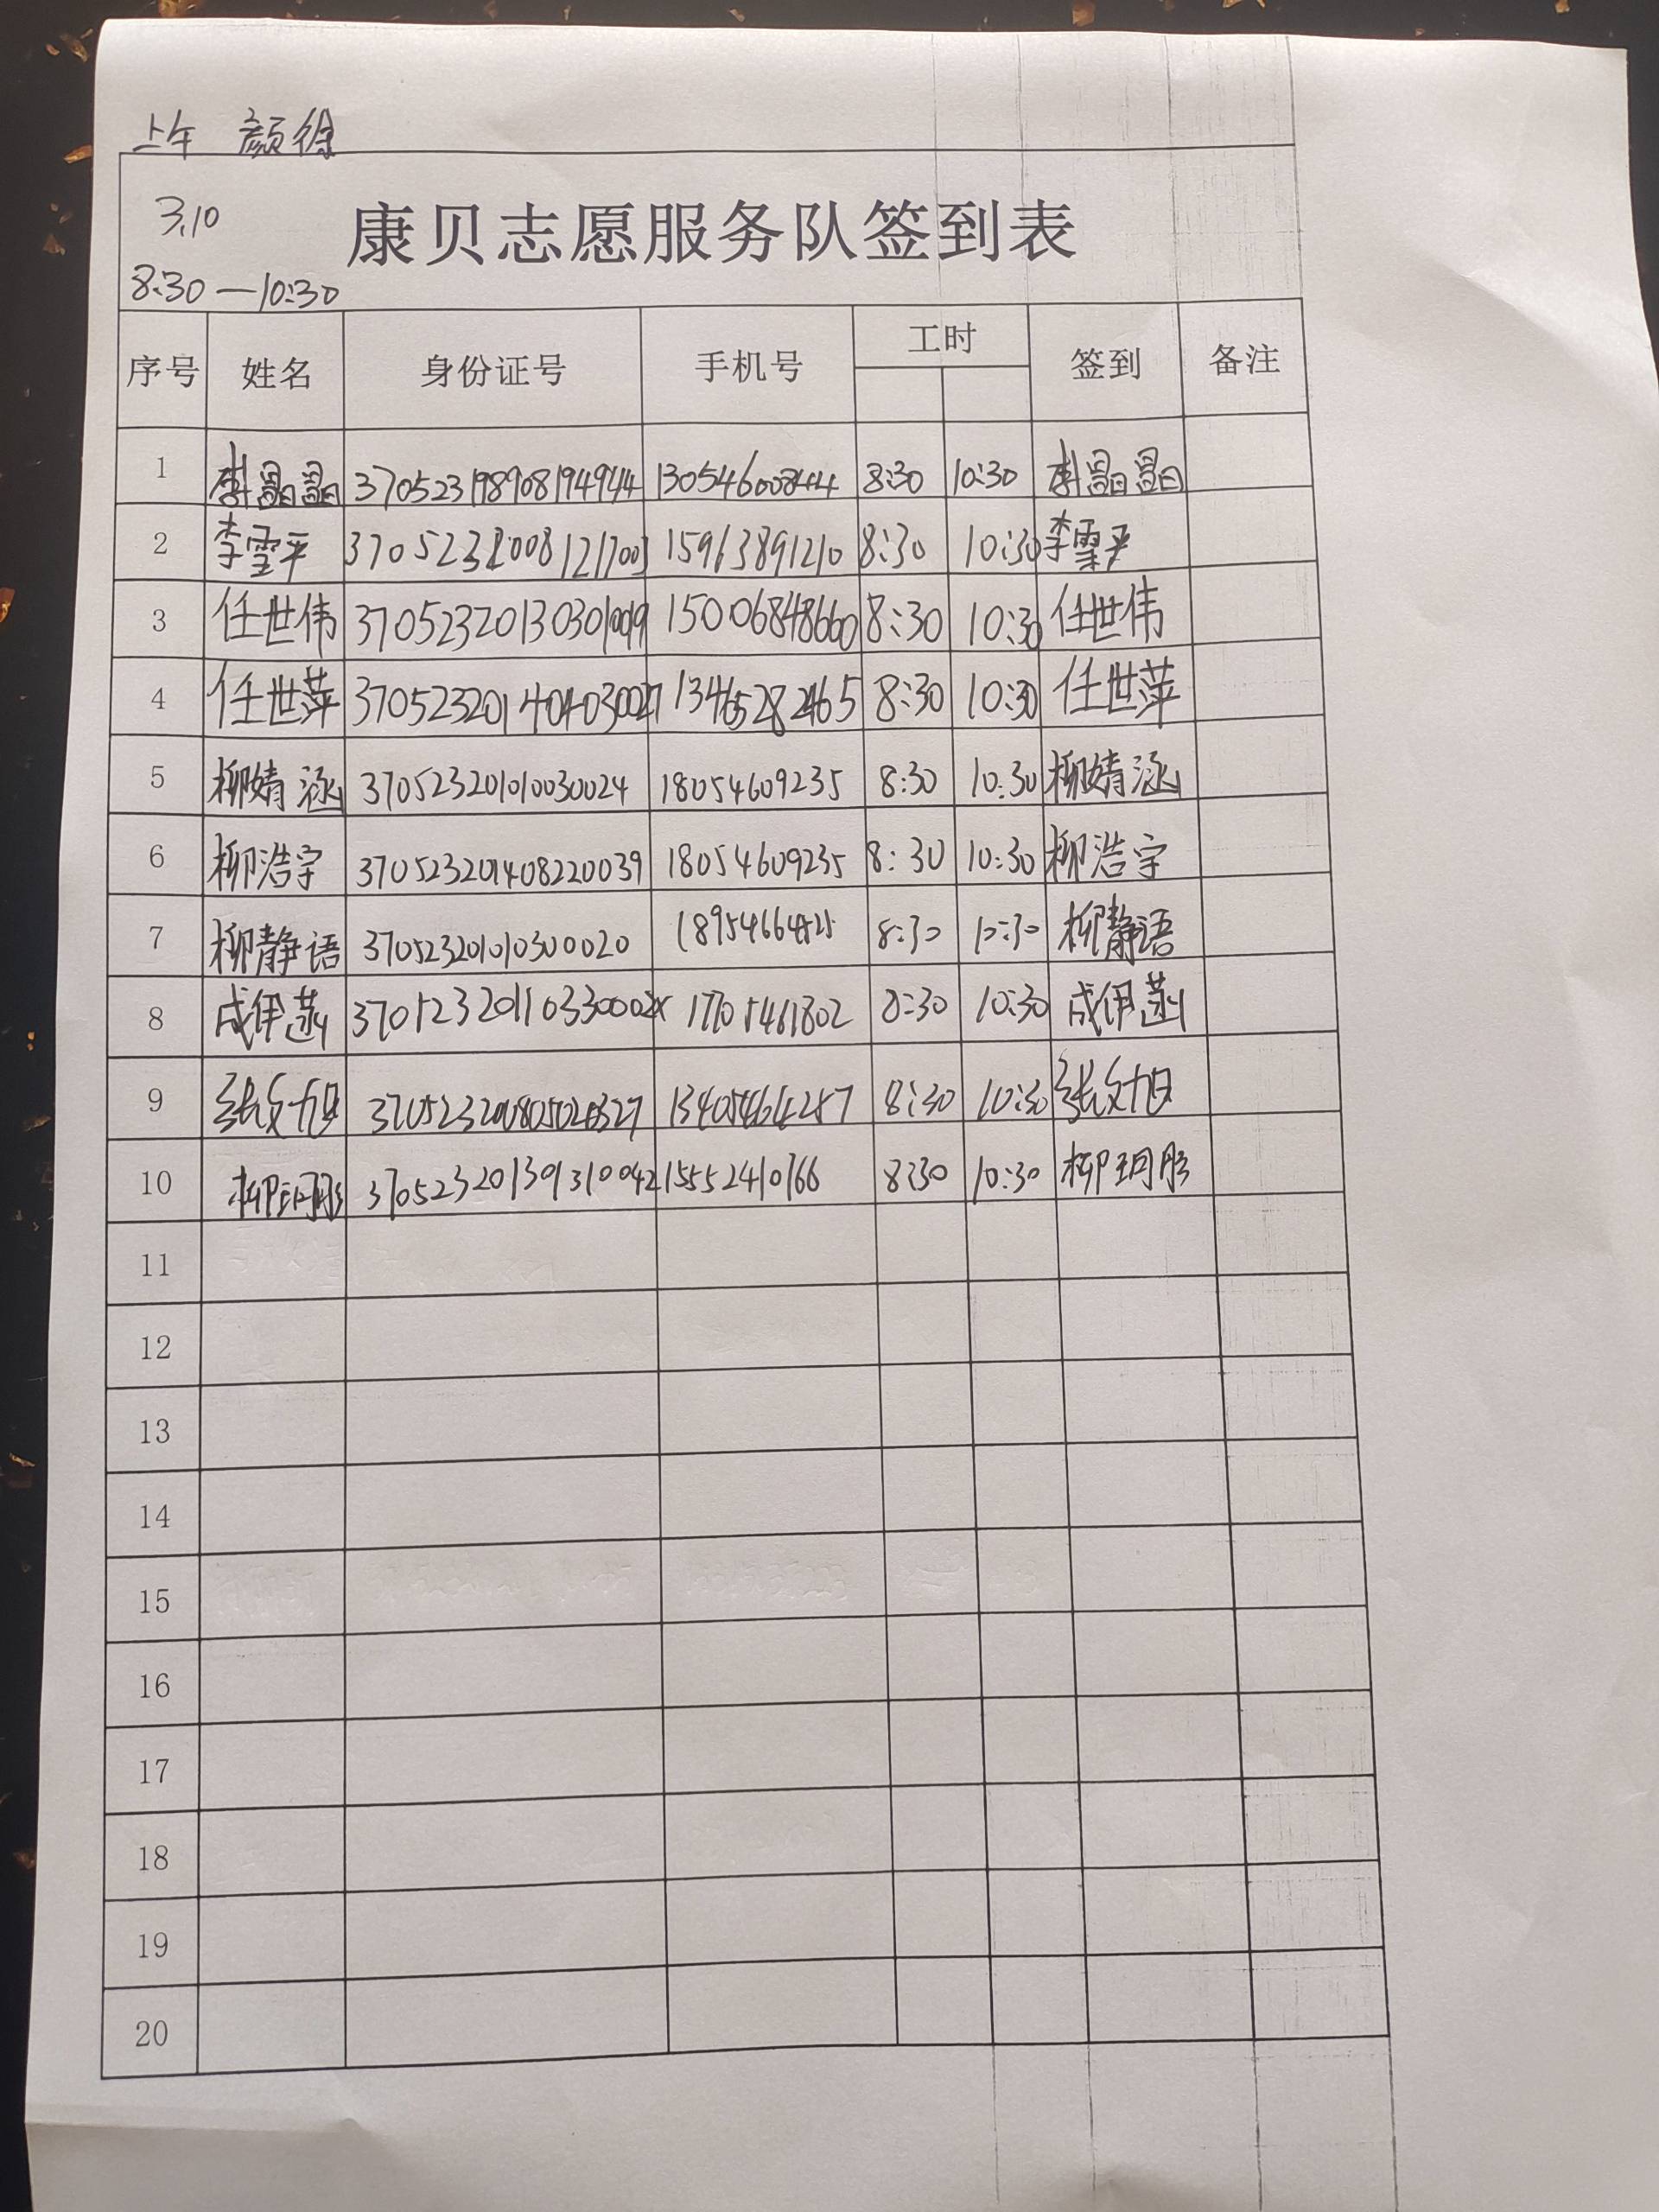 上午 颜徐
3.10
康贝志愿服务队签到表
8:30—10:30
序号 姓名 身份证号 手机号 工时 签到 备注
1 李晶晶 370523198908194944 8:30 10:30 李晶晶
2 李雪平 15963891210 8:30 10:30 李雪平
3 任世伟 15006848660 8:30 10:30 任世伟
4 任世萍 370523201404030027 13465282465 8:30 10:30 任世萍
5 柳婧涵 370523201010030024 18054609235 8:30 10:30 柳婧涵
6 柳浩宇 370523201408220039 18054609235 8:30 10:30 柳浩宇
7 柳静语 370523201010300020 8:30 10:30 柳静语
8 成伊菡 8:30 10:30 成伊菡
9 张文旭 8:30 10:30 张文旭
10 柳玥彤 370523201309310042 15552410766 8:30 10:30 柳玥彤
11
12
13
14
15
16
17
18
19
20